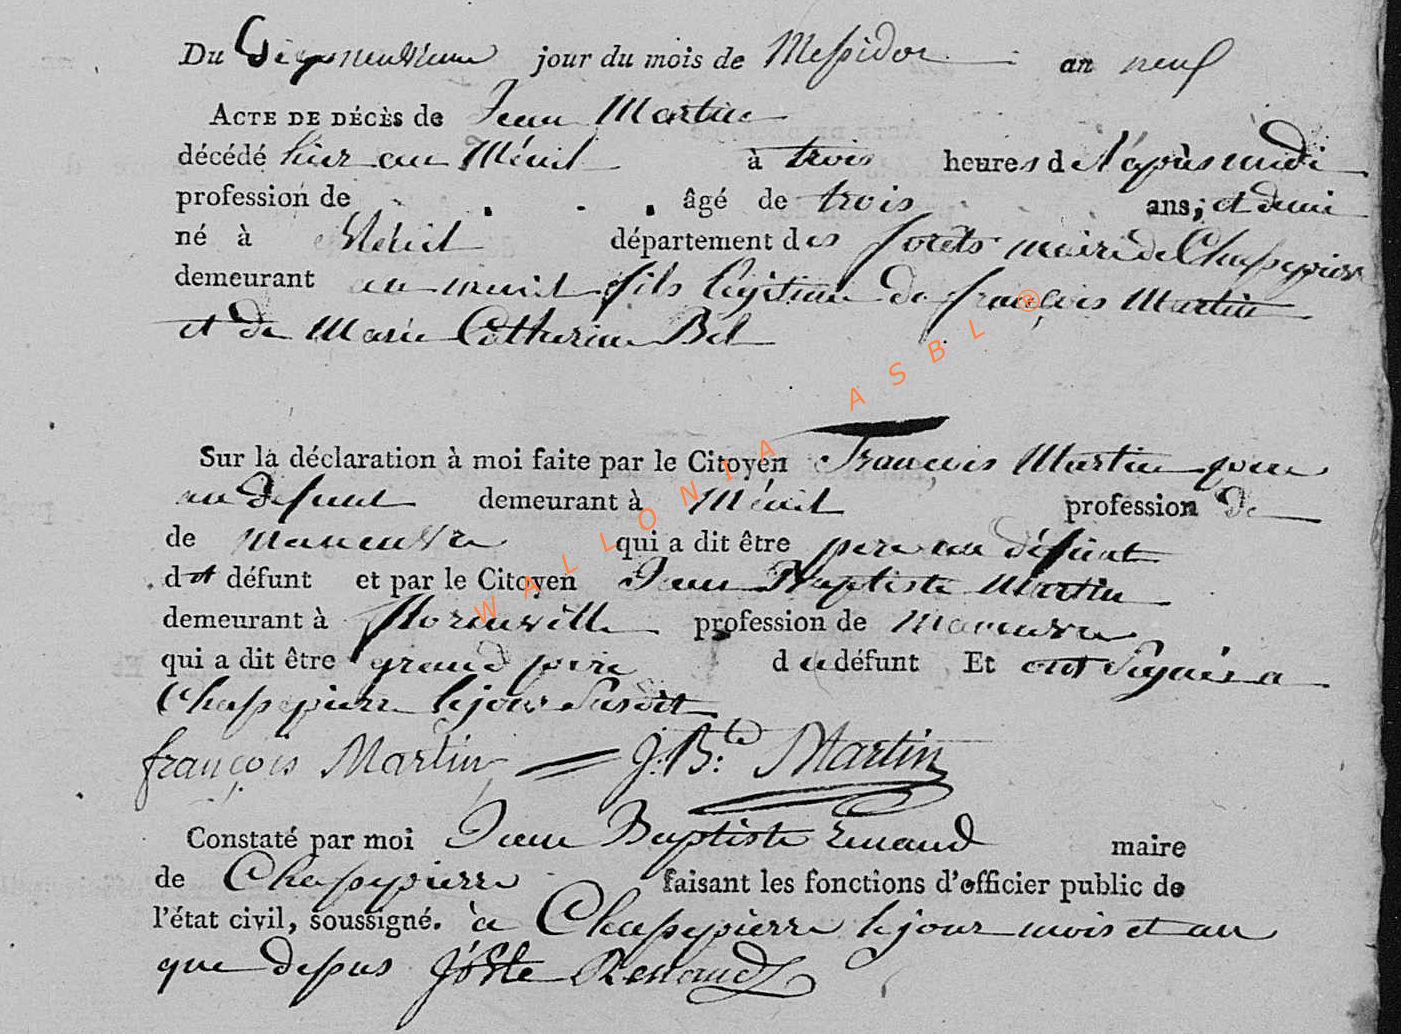 Du Dix neuvieme jour du mois de Messidor an neuf
ACTE DE DÉCÈS de Jean Martin
décédé hier au Ménil à trois heures de l'après midi
profession de . . . âgé de trois ans, et demi
né à Ménil département des forêts mairie de Chassepierre
demeurant au menil fils légitime de françois Martin
et de Marie Catherine Bel
Sur la déclaration à moi faite par le Citoyen François Martin pere
au défunt demeurant à Ménil profession de
de manœuvre qui a dit être pere au défunt
dut défunt et par le Citoyen Jean Baptiste Martin
demeurant à florenville profession de manœuvre
qui a dit être grand pere du défunt Et ont Signés a
Chassepierre le jour Susdit
françois Martin J: B:te Martin
Constaté par moi Jean Baptiste Renaud maire
de Chassepierre faisant les fonctions d'officier public de
l'état civil, soussigné. à Chassepierre le jour mois et an
que dessus J Bte Renaud
WALLONIA ASBL ®